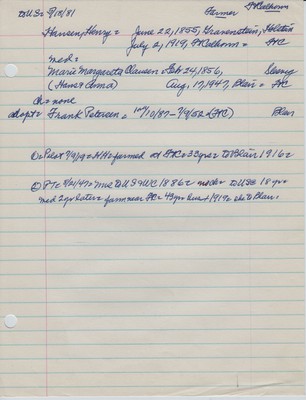 toUS= 9/10/81 Farmer FtCalhoun
Hansen, Henry = June 22, 1855, Gravenstein, Holstein
July 2, 1919, FtCalhoun = FtC
med=
Marie Margareta Clausen = Feb 24, 1856,
(Hans & Anna) Aug. 17, 1947, Blair = FtC
Ch = none
adopt = Frank Petersen = 10/87 - 7/9/52 (FtC) Blair
① = Pilot 7/9/19 = HH = farmed at FtC = 33yrs = to Blair 1916 =
② PT = 8/21/47 = Mrs to US 1886 = to US 18 yr =
med 2 yr later = farm near FC = 43yr 1919 = she to Blair